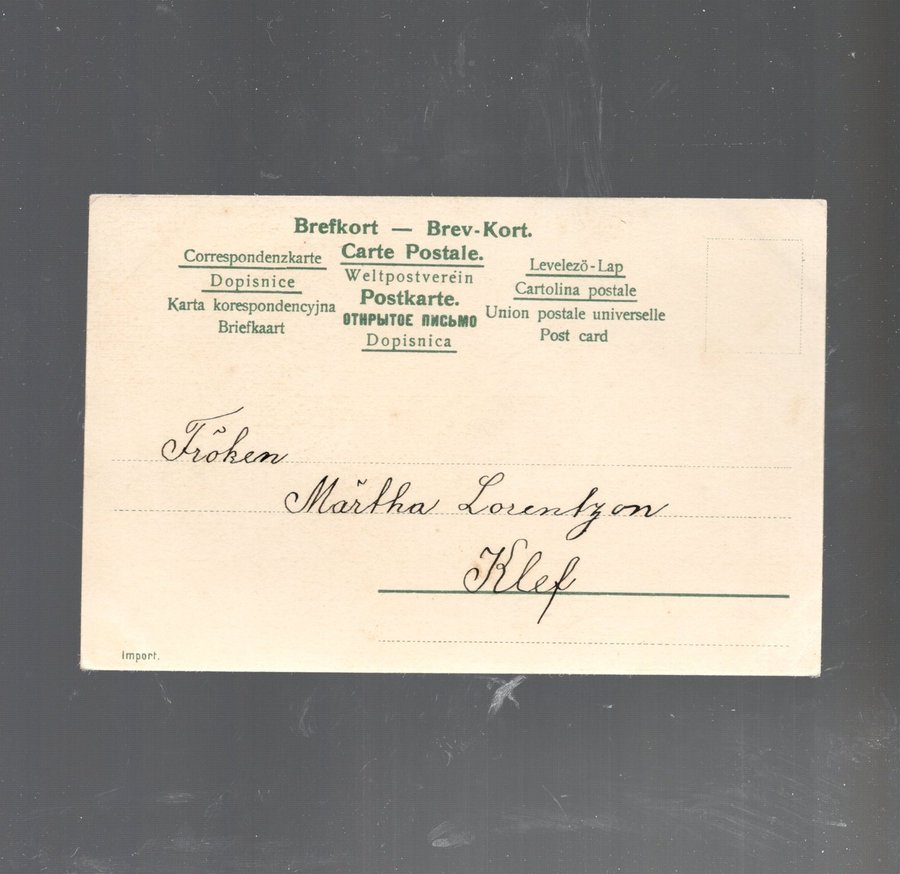 Brefkort — Brev-Kort.
Correspondenzkarte
Dopisnice
Karta korespondencyjna
Briefkaart
Carte Postale.
Weltpostverein
Postkarte.
ОТКРЫТОЕ ПИСЬМО
Dopisnica
Levelezö-Lap
Cartolina postale
Union postale universelle
Post card
Fröken
Märtha Lorentzon
Klef
Import.